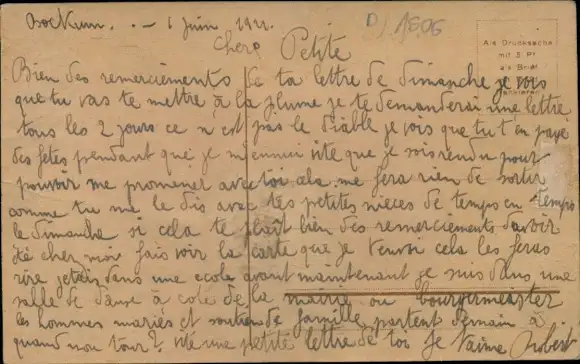 Bockum. - 1 Juin 1922
D/ 1506
Chere Petite
Als Drucksache
mit 5 Pf
als Brief
Bien des remerciements de ta lettre de dimanche je vois
que tu vas te mettre à la plume je te demanderai une lettre
tous les 2 jours ce n est pas le diable je vois que tu t en paye
des fetes pendant que je m ennui vite que je sois rendu pour
pouvoir me promener avec toi cela me fera rien de sortir
comme tu me le dis avec tes petites nieces de temps en temps
le dimanche si cela te plait bien des remerciements d'avoir
été chez moi fais voir la carte que je t'envoi cela les feras
rire jetais dans une ecole avant maintenant je suis dans une
salle de danse à coté de la mairie ou bourgermeister
les hommes mariés et soutien de famille partent demain à
quand mon tour? vite une petite lettre de toi Je t'aime Robert